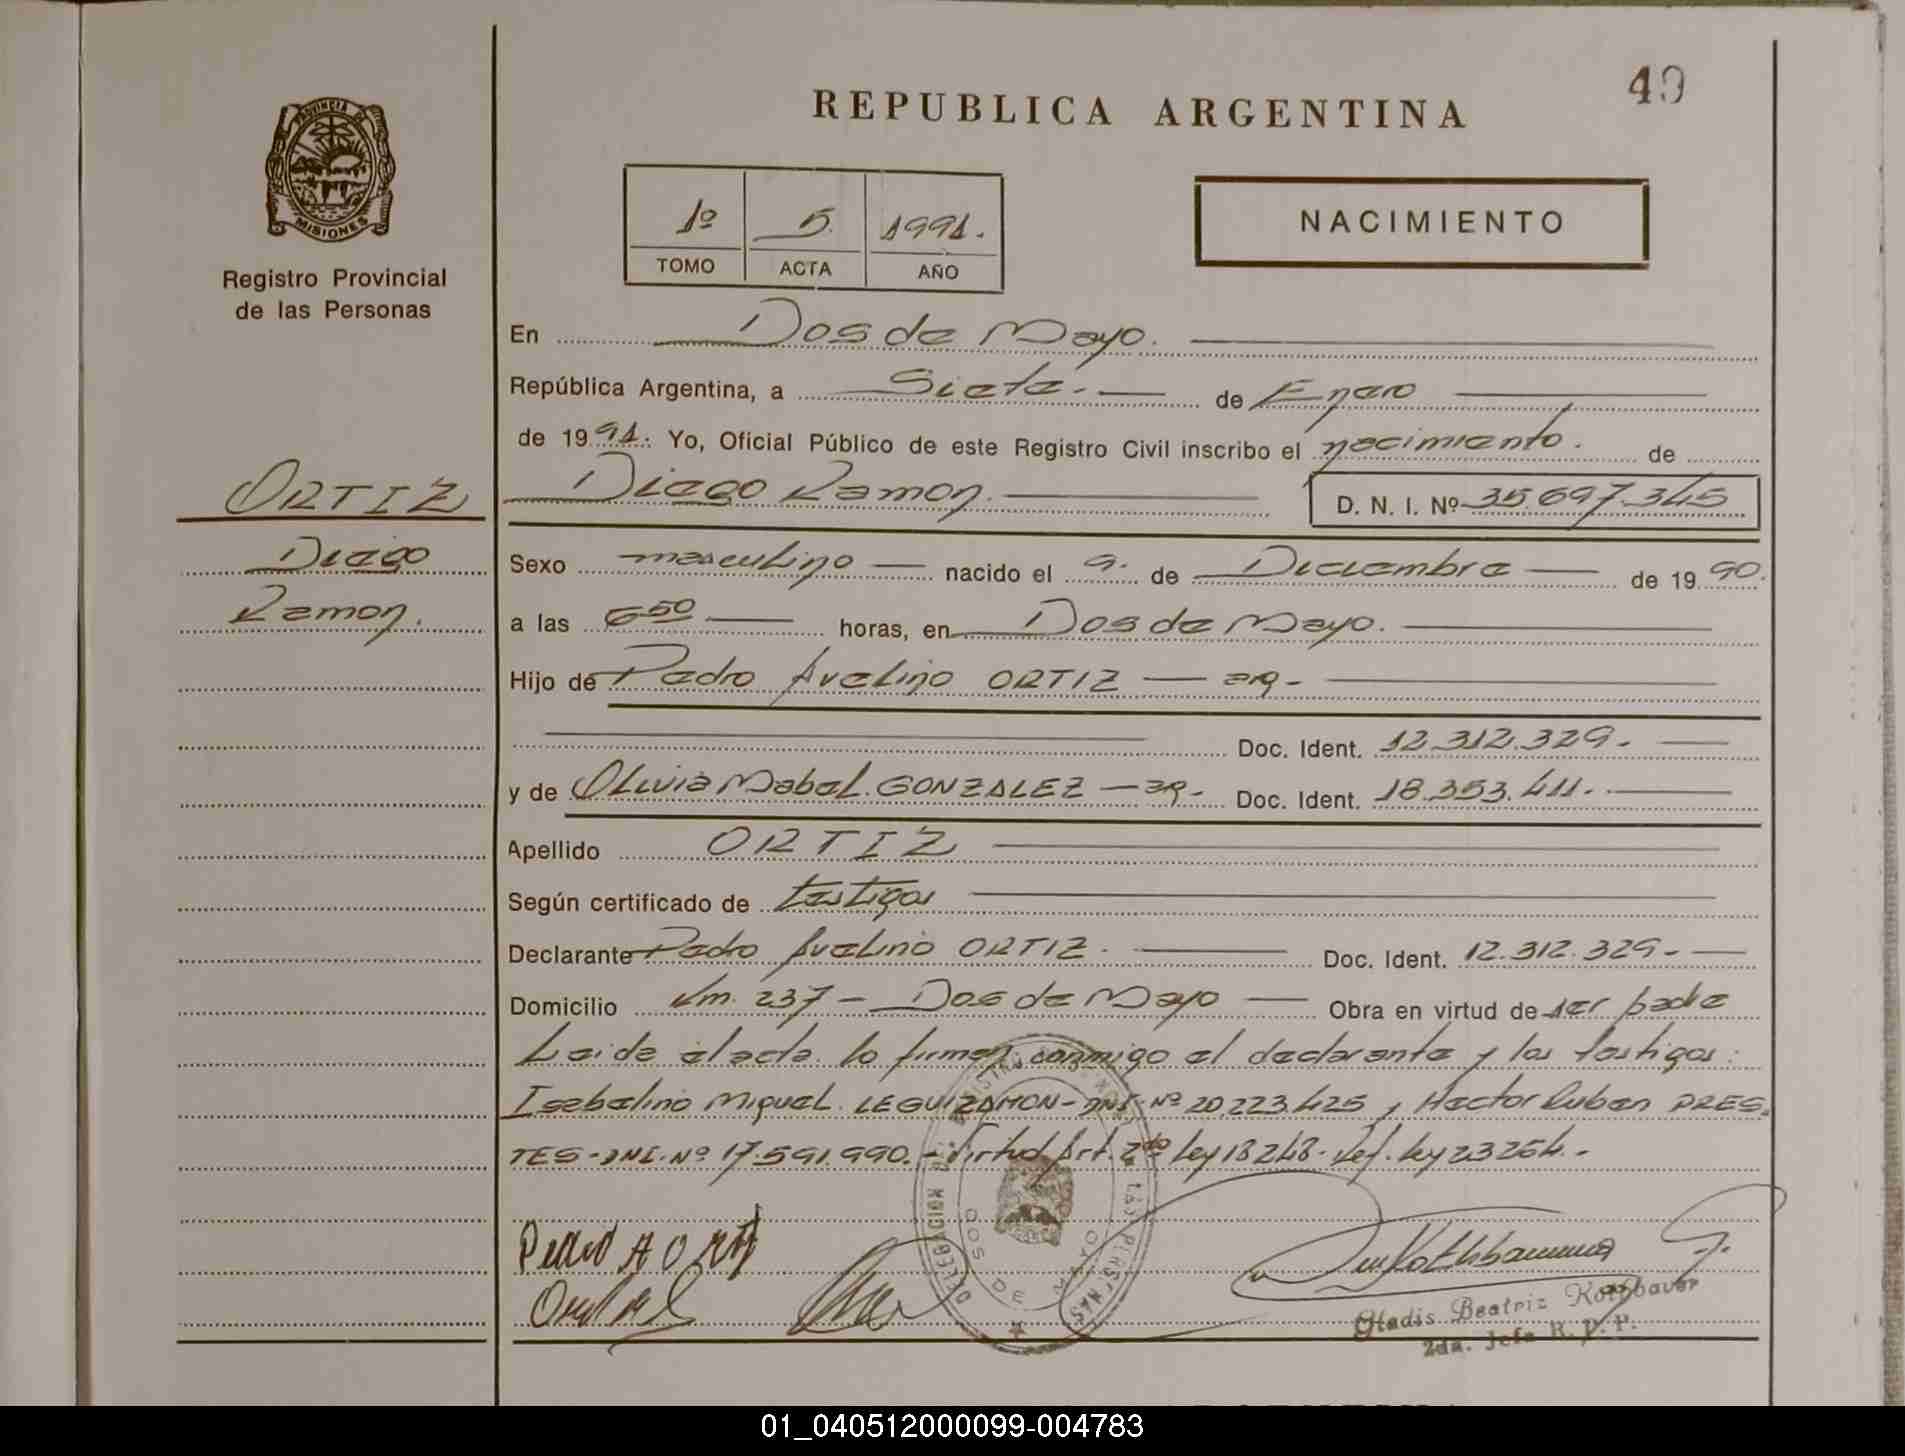 49
REPUBLICA ARGENTINA
PROVINCIA DE MISIONES
Registro Provincial
de las Personas
1º 5. 1991.
TOMO ACTA AÑO
NACIMIENTO
En Dos de Mayo.
República Argentina, a Siete.- de Enero
de 1991. Yo, Oficial Público de este Registro Civil inscribo el nacimiento. de
ORTIZ
Diego
Ramon.
Diego Ramon. D. N. I. Nº 35.697.345
Sexo masculino nacido el 9. de Diciembre de 1990.
a las 6 50 horas, en Dos de Mayo.
Hijo de Pedro Avelino ORTIZ — arg.-
Doc. Ident. 12.312.329.-
y de Olivia Mabel GONZALEZ — arg.- Doc. Ident. 18.353.411.-
Apellido ORTIZ
Según certificado de testigos
Declarante Pedro Avelino ORTIZ. Doc. Ident. 12.312.329.-
Domicilio Km. 237 - Dos de Mayo Obra en virtud de ser padre
Leida el acta lo firman conmigo el declarante y los testigos:
Isabelino Miguel LEGUIZAMON - DNI. Nº 20.223.425 y Hector Ruben PRES-
TES - DNI. Nº 17.591.990. - Virtud Art. 2do Ley 18248. Ref. Ley 23264.-
Pedro A Ortiz
DELEGACION DEL REGISTRO PROVINCIAL DE LAS PERSONAS
DOS DE MAYO
Gladis Beatriz Kothbauer
2da. Jefa R. P. P.
01_040512000099-004783